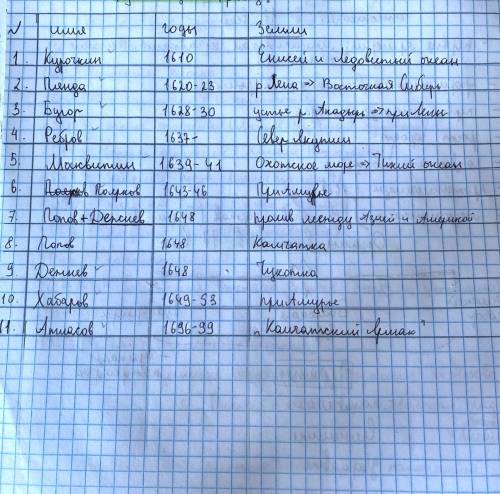 N имя годы Земли
1. Курочкин 1610 Енисей и Ледовитый океан
2. Пянда 1620-23 р Лена => Восточная Сибирь
3. Бугор 1628-30 устье р Анадырь => при Лены
4. Ребров 1637- Север Якутии
5. Москвитин 1639-41 Охотское море => Тихий океан
6. Поярков 1643-46 ПриАмурье
7. Попов + Дежнев 1648 пролив между Азией и Америкой
8. Попов 1648 Камчатка
9. Дежнев 1648 Чукотка
10. Хабаров 1649-53 приАмурье
11. Атласов 1696-99 „Камчатский Ермак"